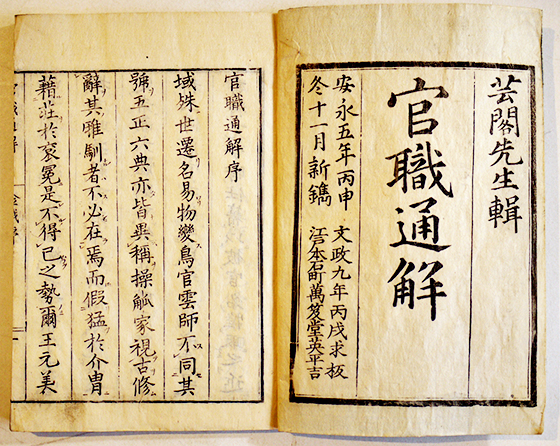 芸閣先生輯
官職通解
安永五年丙申 文政九年丙戌求板
冬十一月新鐫 江戸本石町 萬笈堂英平吉
官職通解序
域殊世遷名易物變鳥官雲師不同其
號五正六典亦皆異稱操觚家視古修
辭其雅馴者不必在焉而假猛於介冑
藉莊於袞冕是不得已之勢爾王元美